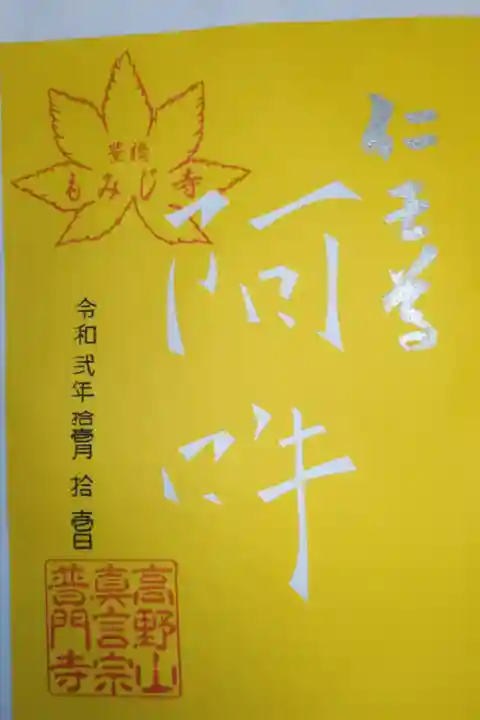 仁王尊
阿吽
豊橋
もみじ寺
令和弐年拾壱月拾壱日
高野山
真言宗
普門寺